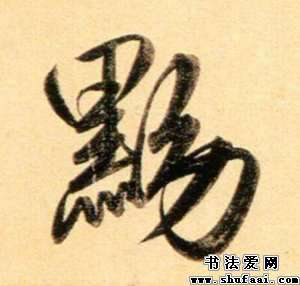 黝
书法爱网
www.shufaai.com